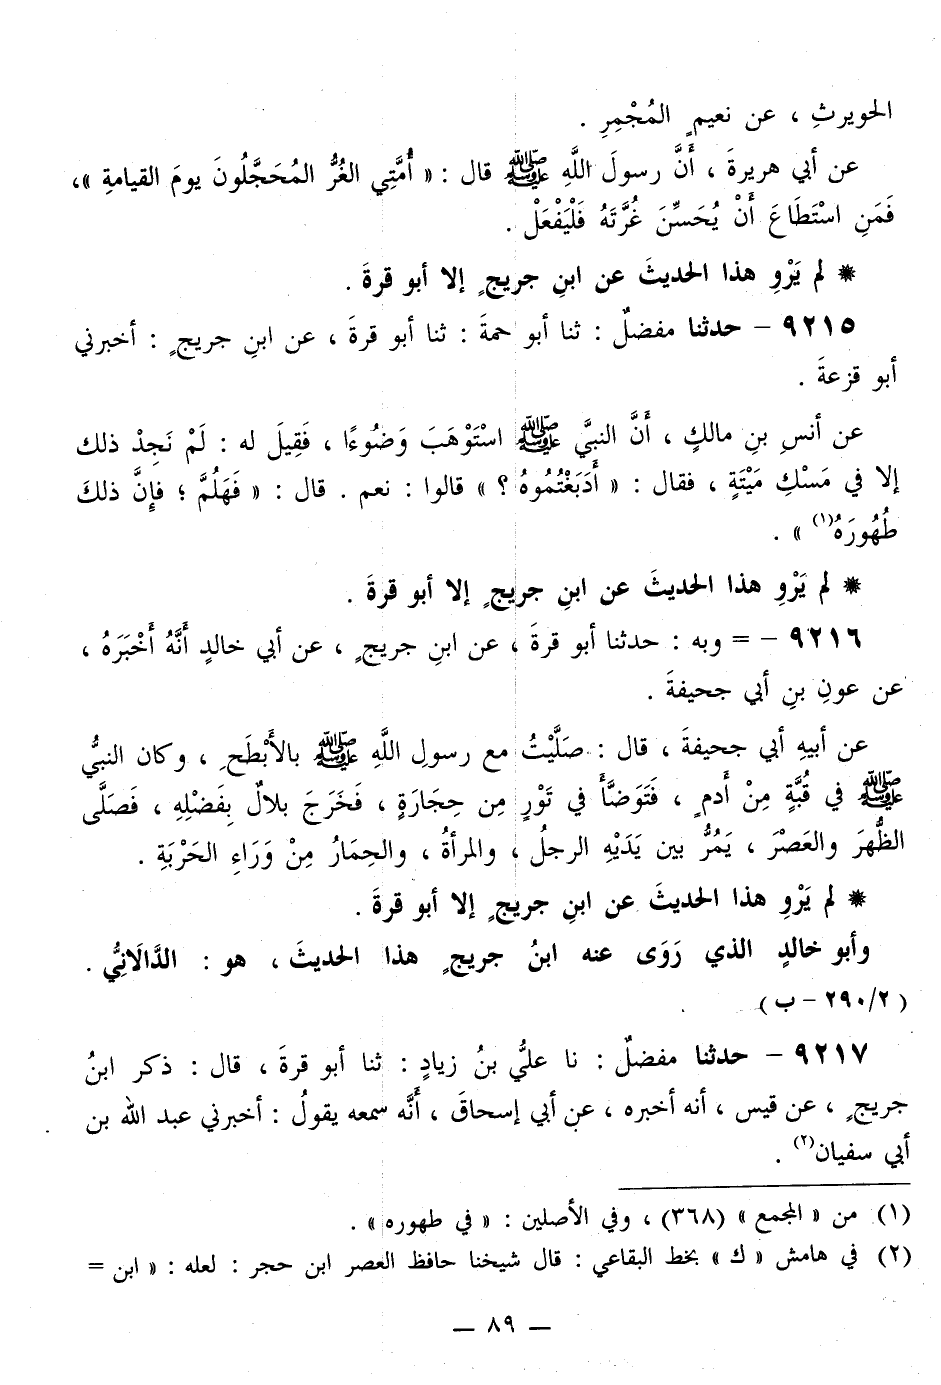 الحويرثِ ، عن نعيمٍ المُجْمِرِ .
عن أبي هريرةَ ، أَنَّ رسولَ اللَّهِ ﷺ قال : « أُمَّتِي الغُرُّ المُحَجَّلُونَ يومَ القيامةِ »،
فَمَنِ اسْتَطَاعَ أَنْ يُحَسِّنَ غُرَّتَهُ فَلْيَفْعَلْ .
* لم يَرْوِ هذا الحديثَ عن ابنِ جريجٍ إلا أبو قرةَ .
٩٢١٥ – حدثنا مفضلٌ : ثنا أبو حمةَ : ثنا أبو قرةَ ، عن ابنِ جريجٍ : أخبرني
أبو قزعةَ .
عن أنسِ بنِ مالكٍ ، أَنَّ النبيَّ ﷺ اسْتَوْهَبَ وَضُوءًا ، فَقِيلَ له : لَمْ نَجِدْ ذلك
إلا في مَسْكِ مَيْتَةٍ ، فقال : « أَدَبَغْتُمُوهُ ؟ » قالوا : نعم . قال : « فَهَلُمَّ ؛ فإِنَّ ذلكَ
طُهُورَهُ(١) » .
* لم يَرْوِ هذا الحديثَ عن ابنِ جريجٍ إلا أبو قرةَ .
٩٢١٦ – = وبه : حدثنا أبو قرةَ ، عن ابنِ جريجٍ ، عن أبي خالدٍ أَنَّهُ أَخْبَرَهُ ،
عن عونِ بنِ أبي جحيفةَ .
عن أبيهِ أبي جحيفةَ ، قال : صَلَّيْتُ مع رسولِ اللَّهِ ﷺ بالأَبْطَحِ ، وكان النبيُّ
ﷺ في قُبَّةٍ مِنْ أَدمٍ ، فَتَوَضَّأَ في تَوْرٍ مِن حِجَارَةٍ ، فَخَرَجَ بلالٌ بِفَضْلِهِ ، فَصَلَّى
الظُّهرَ والعَصْرَ ، يَمُرُّ بين يَدَيْهِ الرجلُ ، والمرأةُ ، والحِمَارُ مِنْ وَرَاءِ الحَرْبَةِ .
* لم يَرْوِ هذا الحديثَ عن ابنِ جريجٍ إلا أبو قرةَ .
وأبو خالدٍ الذي رَوَى عنه ابنُ جريجٍ هذا الحديثَ ، هو : الدَّالَانِيُّ .
( ٢/ ٢٩٠ – ب )
٩٢١٧ – حدثنا مفضلٌ : نا عليُّ بنُ زيادٍ : ثنا أبو قرةَ ، قال : ذكر ابنُ
جريجٍ ، عن قيس ، أنه أخبره ، عن أبي إسحاقَ ، أَنَّه سمعه يقولُ : أخبرني عبد الله بن
أبي سفيان(٢) .
(١) من « المجمع » (٣٦٨) ، وفي الأصلين : « في طهوره » .
(٢) في هامش « ك » بخط البقاعي : قال شيخنا حافظ العصر ابن حجر : لعله : « ابن =
— ٨٩ —